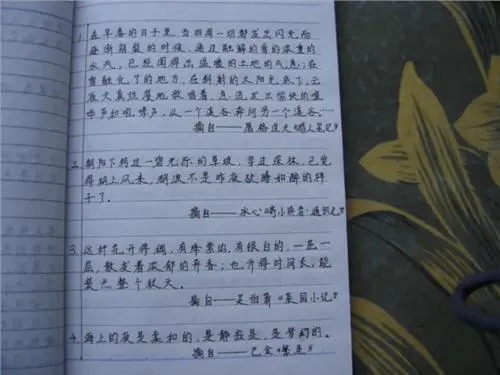 1. 在早春的日子里,当四周一切都发出闪光而
逐渐崩裂的时候,通过融解的雪的浓重的
水汽,已经闻得出温暖的土地的气息;在
雪融化了的地方,在斜射的太阳光底下,云
雀天真烂漫地歌唱着,急流发出愉快的喧
哗声和吼啸声,从一个溪谷奔向另一个溪谷。
摘自——屠格涅夫《猎人笔记》
2. 朝阳下转过一碧无际的草坡,穿过深林,已觉
得湖上风来,湖波不是昨夜欲睡如醉的样
子了。
摘自——冰心《寄小读者·通讯七》
3. 这村花开得稠,有绛紫的,有银白的,一层一
层,散发着浓郁的异香;也开得时间长,能
装点整个秋天。
摘自——吴伯箫《菜园小记》
4. 海上的夜是柔和的,是静寂的,是梦幻的。
摘自——巴金《繁星》